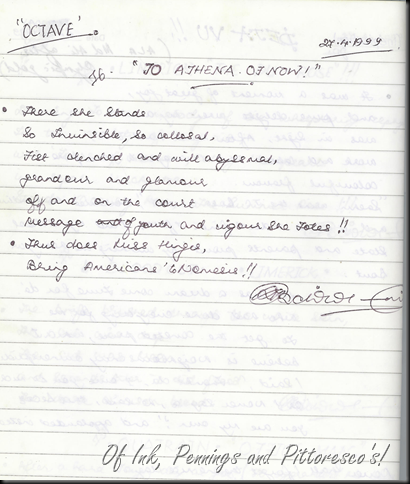 "OCTAVE'
27.4.1999
"TO ATHENA OF NOW!"
• There She Stands
So Invincible, So collosal,
Fist clenched and will abysmal,
grandeur and glamour
off and on the court
Message of youth and vigour She Totes !!
• Thus does Miss Hingis,
Being Americans' Nemesis !!
Of Ink, Pennings and Pittoresco's!